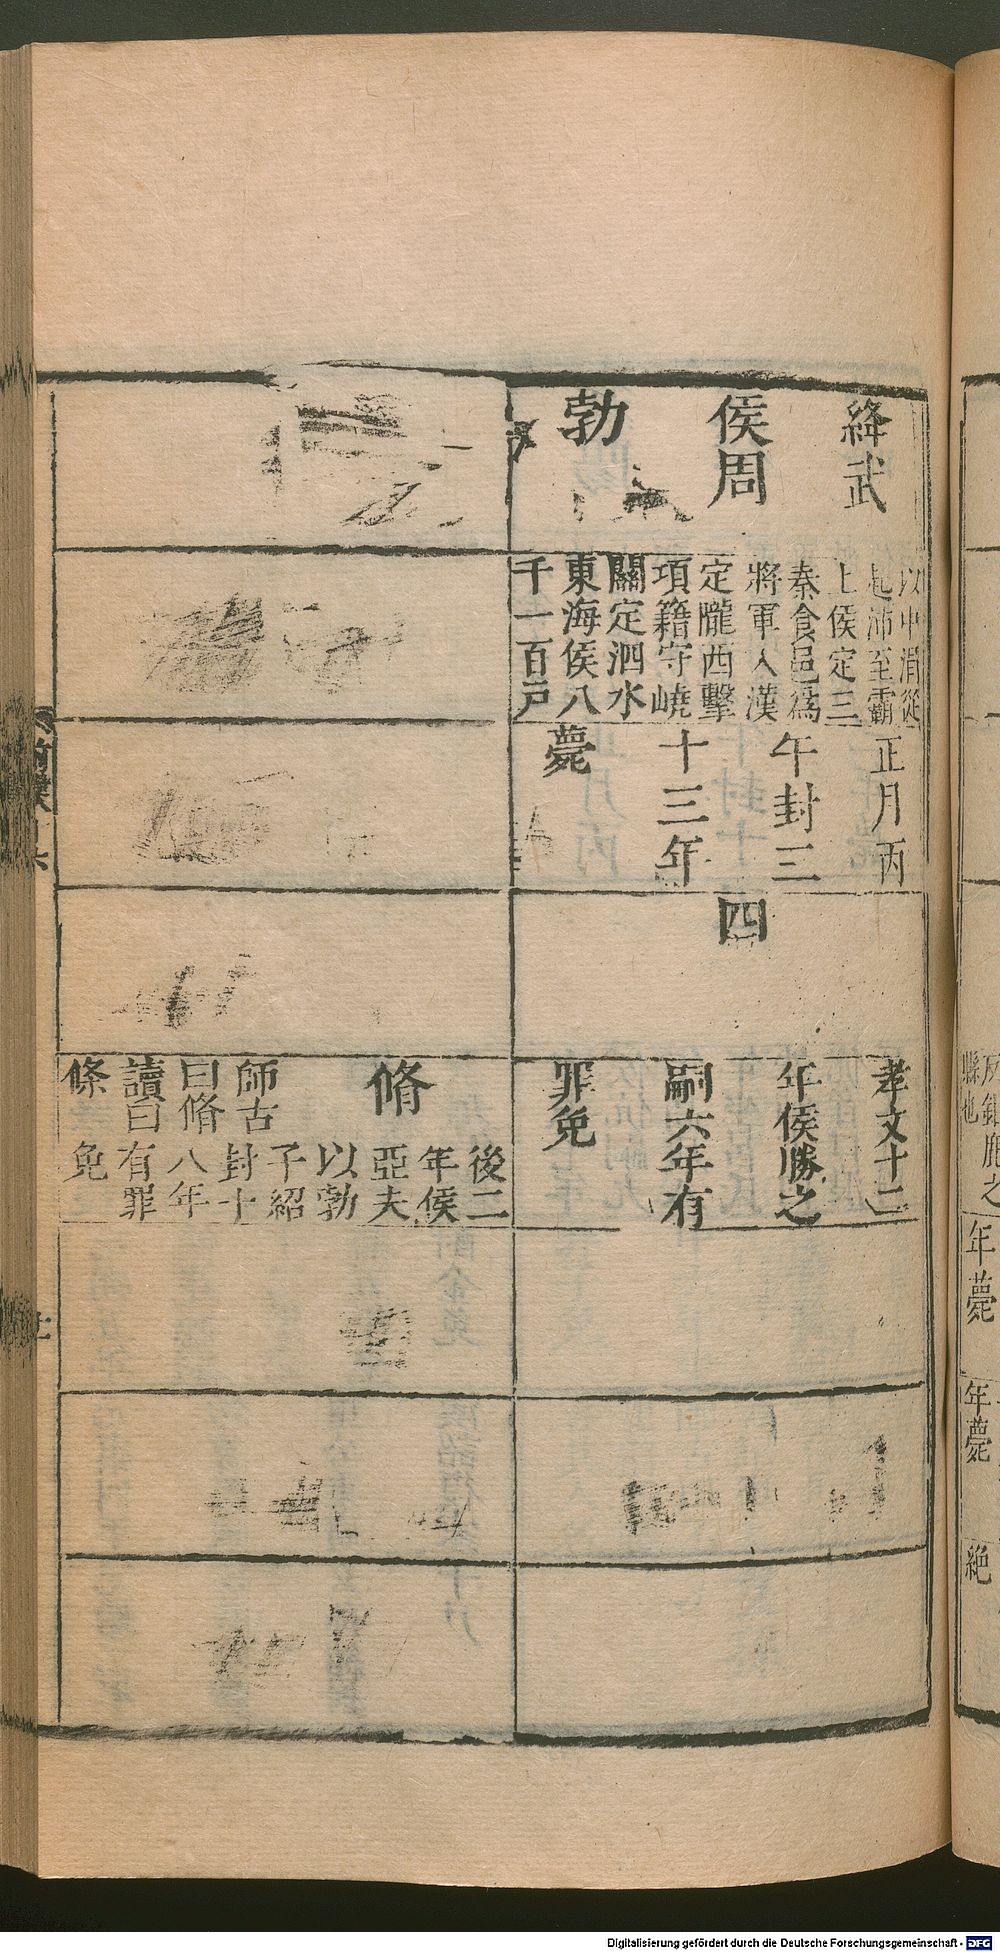 絳武
侯周
勃
以中涓從
起沛至霸
上侯定三
秦食邑為
將軍入漢
定隴西擊
項籍守嶢
關定泗水
東海侯八
千一百戸
正月丙
午封三
十三年
薨
四
孝文十二
年侯勝之
嗣六年有
罪免
脩
師古
曰脩
讀曰
條
後二
年侯
亞夫
以勃
子紹
封十
八年
有罪
免
之
縣也
年薨
年薨
絶
Digitalisierung gefördert durch die Deutsche Forschungsgemeinschaft - DFG